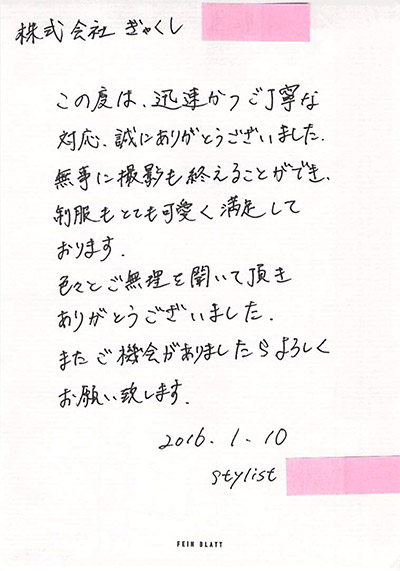 株式会社 ぎゃくし
この度は、迅速かつご丁寧な
対応、誠にありがとうございました.
無事に撮影も終えることができ、
制服もとても可愛く満足して
おります.
色々とご無理を聞いて頂き
ありがとうございました.
またご機会がありましたらよろしく
お願い致します.
2016. 1. 10
stylist
FEIN BLATT